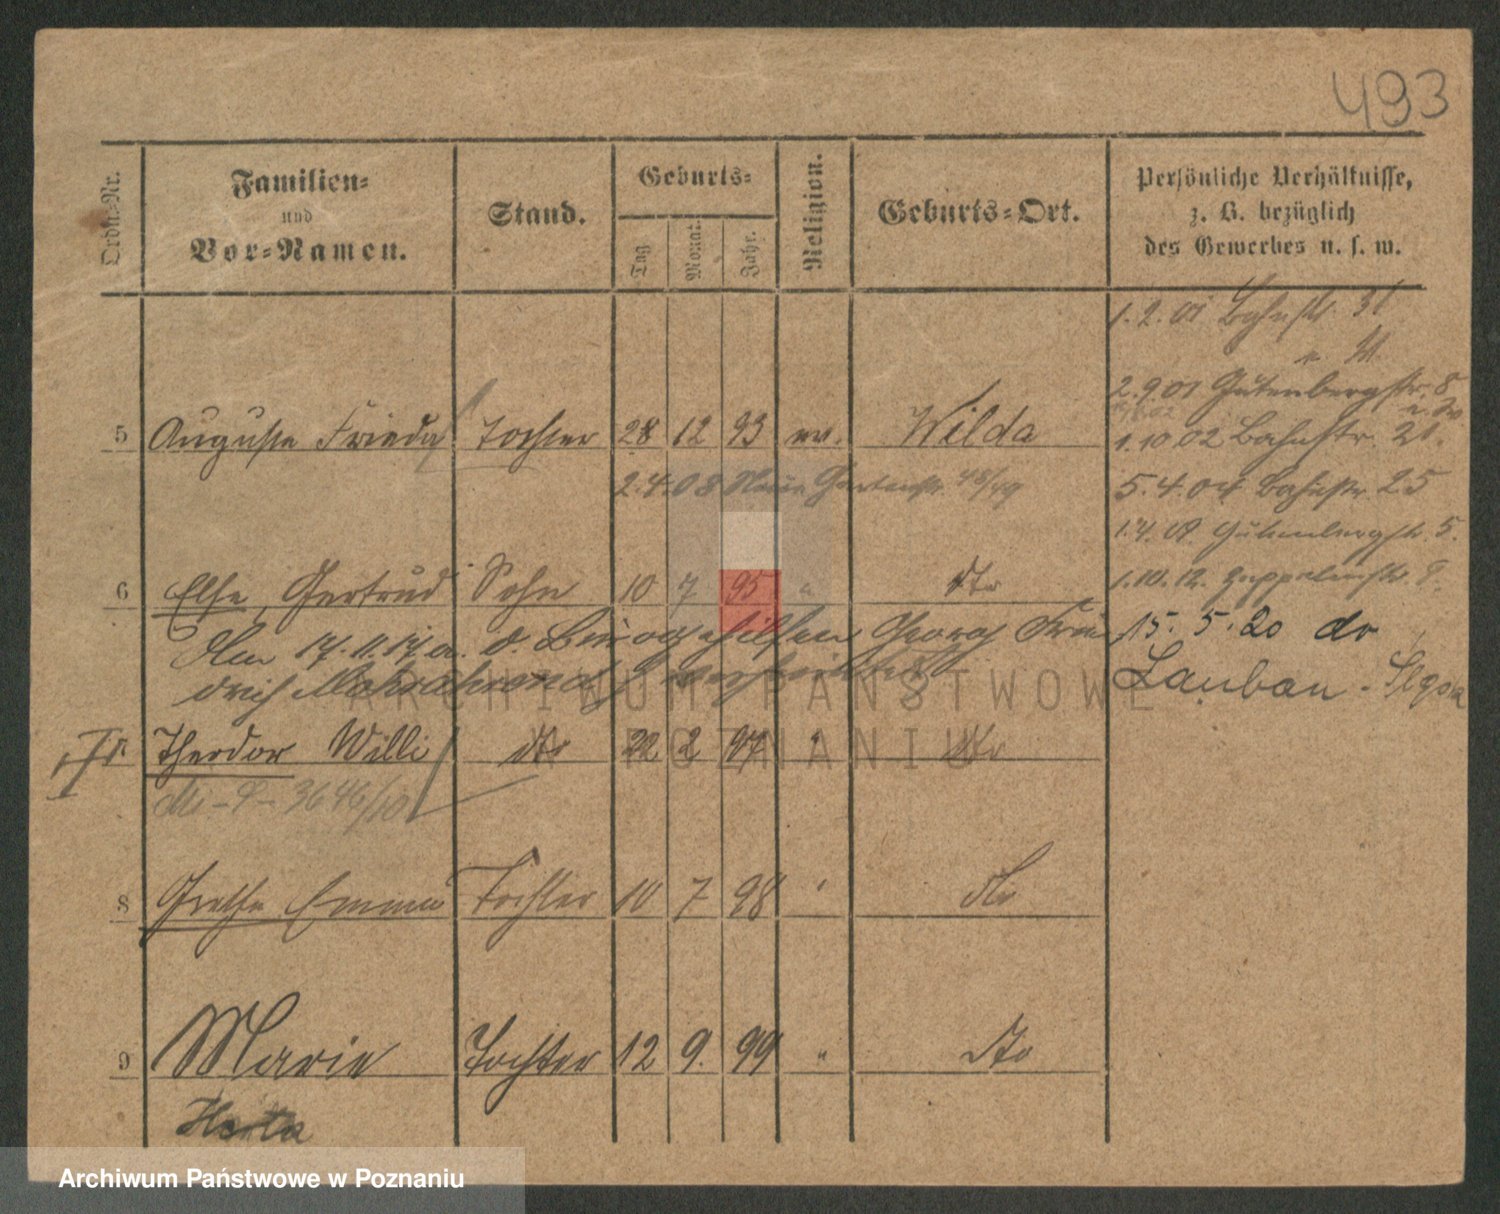 493
Ordn.-Nr.
Familien-
und
Vor-Namen.
Stand.
Geburts-
Tag
Monat.
Jahr.
Religion.
Geburts-Ort.
Persönliche Verhältnisse,
z. B. bezüglich
des Gewerbes u. s. w.
1.2.01 Bahnstr. 31
2.9.01 Gutenbergstr. 8
5 Auguste Frieda Tochter 28 12 93 ev. Wilda
1.10.02 Bahnstr. 21.
2.4.08 Neue Gartenstr. 48/49
5.4.04 Bahnstr. 25
1.4.09 Gutenbergstr. 5.
6 Else, Gertrud Sohn 10 7 95 " dto
1.10.12. Zeppelinstr.
Am 17.11.17 a. d. Bürogehilfen Georg Frie
15.5.20 do
drich verheiratet
Lauban -
7 Theodor Willi dto 22 2 97 " dto
3646/10
8 Grethe Emma Tochter 10 7 98 " dto
9 Marie Tochter 12 9. 99 " dto
Herta
ARCHIWUM PAŃSTWOWE
W POZNANIU
Archiwum Państwowe w Poznaniu